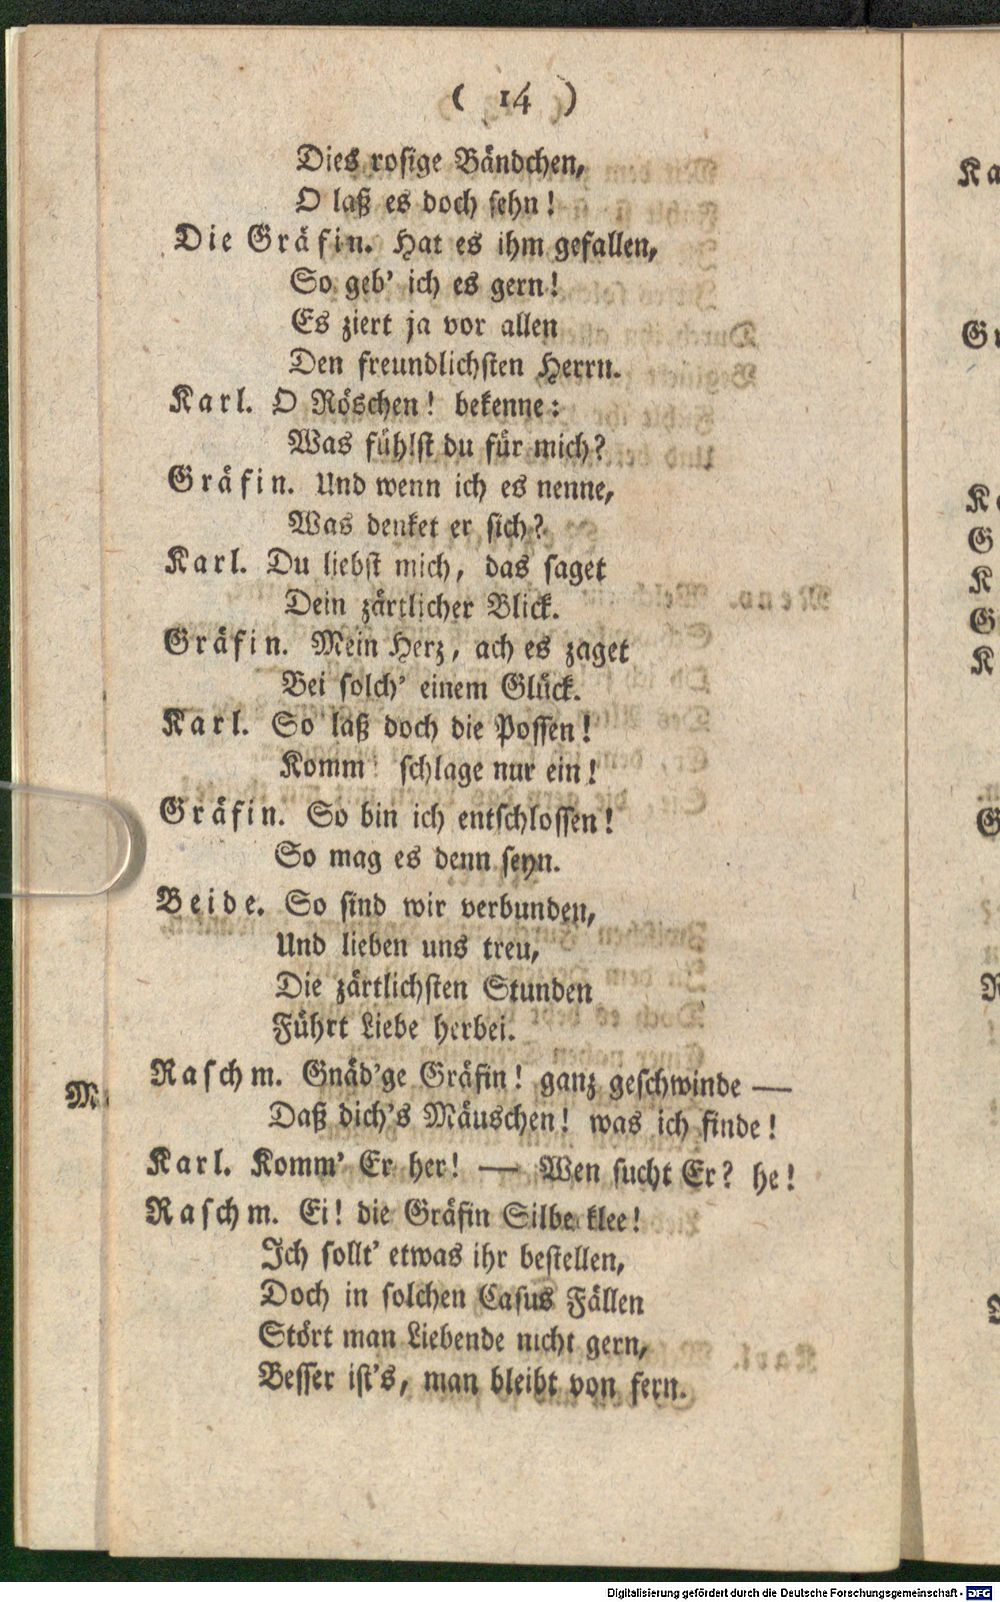 ( 14 )
Dies rosige Bändchen,
O laß es doch sehn!
Die Gräfin. Hat es ihm gefallen,
So geb' ich es gern!
Es ziert ja vor allen
Den freundlichsten Herrn.
Karl. O Röschen! bekenne:
Was fühlst du für mich?
Gräfin. Und wenn ich es nenne,
Was denket er sich?
Karl. Du liebst mich, das saget
Dein zärtlicher Blick.
Gräfin. Mein Herz, ach es zaget
Bei solch' einem Glück.
Karl. So laß doch die Possen!
Komm schlage nur ein!
Gräfin. So bin ich entschlossen!
So mag es denn seyn.
Beide. So sind wir verbunden,
Und lieben uns treu,
Die zärtlichsten Stunden
Führt Liebe herbei.
Raschm. Gnäd'ge Gräfin! ganz geschwinde —
Daß dich's Mäuschen! was ich finde!
Karl. Komm' Er her! — Wen sucht Er? he!
Raschm. Ei! die Gräfin Silberklee!
Ich sollt' etwas ihr bestellen,
Doch in solchen Casus Fällen
Stört man Liebende nicht gern,
Besser ist's, man bleibt von fern.
Digitalisierung gefördert durch die Deutsche Forschungsgemeinschaft - DFG